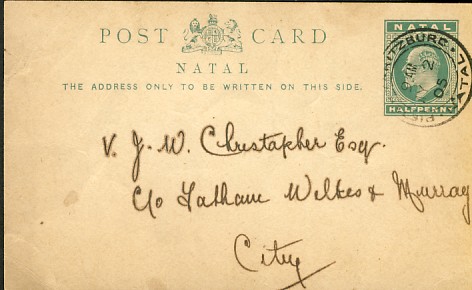 POST CARD
NATAL
THE ADDRESS ONLY TO BE WRITTEN ON THIS SIDE.
NATAL
HALFPENNY
RITZBURG
NATAL
05
V. J. W. Christopher Esq.
C/o Tatham Wilkes & Murray
City